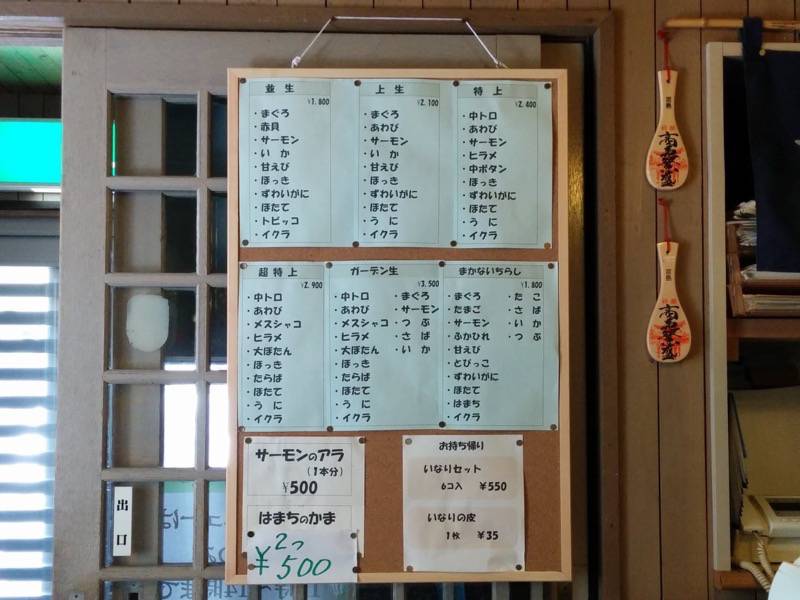 並生
¥1.800
・まぐろ
・赤貝
・サーモン
・いか
・甘えび
・ほっき
・ずわいがに
・ほたて
・トビッコ
・イクラ
上生
¥2.100
・まぐろ
・あわび
・サーモン
・いか
・甘えび
・ほっき
・ずわいがに
・ほたて
・うに
・イクラ
特上
¥2.400
・中トロ
・あわび
・サーモン
・ヒラメ
・中ボタン
・ほっき
・ずわいがに
・ほたて
・うに
・イクラ
超特上
¥2.900
・中トロ
・あわび
・メスシャコ
・ヒラメ
・大ぼたん
・ほっき
・たらば
・ほたて
・うに
・イクラ
ガーデン生
¥3.500
・中トロ ・まぐろ
・あわび ・サーモン
・メスシャコ ・つぶ
・ヒラメ ・さば
・大ぼたん ・いか
・ほっき
・たらば
・ほたて
・うに
・イクラ
まかないちらし
¥1.800
・まぐろ ・たこ
・たまご ・さば
・サーモン ・いか
・ふかひれ ・つぶ
・甘えび
・とびっこ
・ずわいがに
・ほたて
・はまち
・イクラ
サーモンのアラ
(1本分)
¥500
はまちのかま
2つ
¥500
お持ち帰り
いなりセット
6コ入 ¥550
いなりの皮
1枚 ¥35
出口